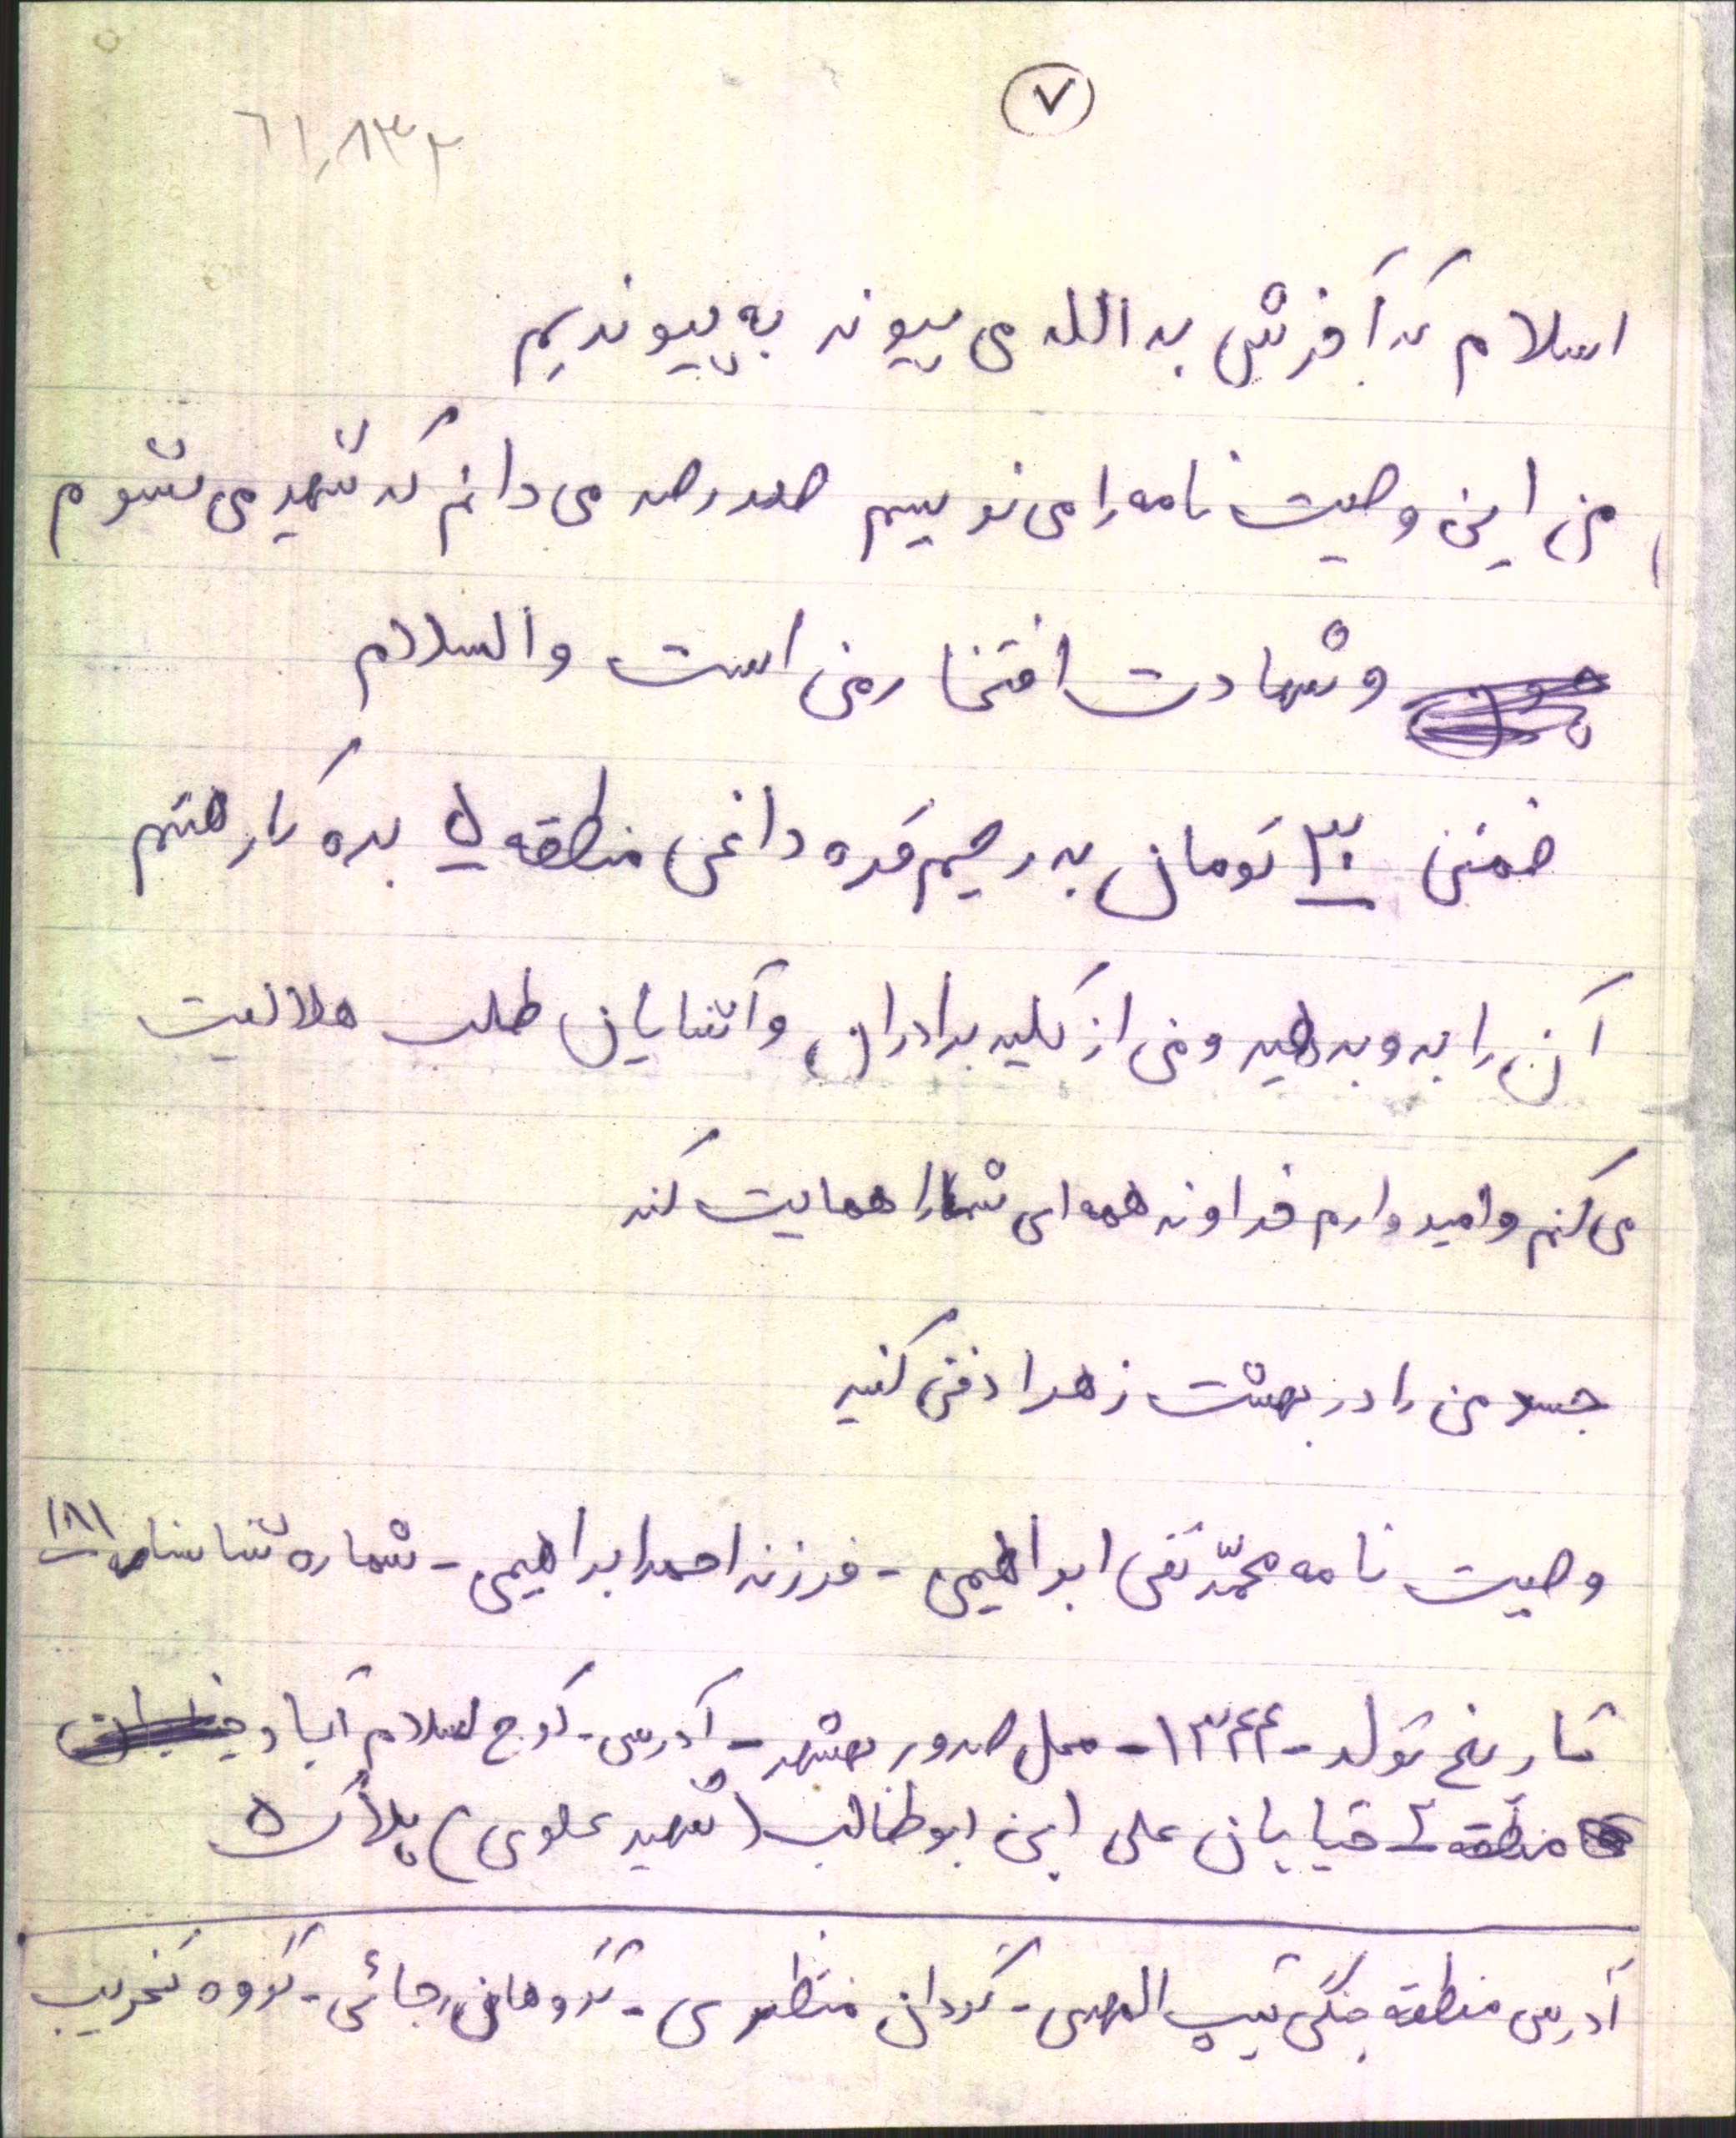 ۷
۶۱٫۸۳۲
اسلام که آخرش به الله می پیوند به پیوندیم
من این وصیت نامه را می نویسم صددرصد می دانم که شهید می شوم
و شهادت افتخار من است والسلام
ضمنی ۳۰ تومان به رحیم قره داغی منطقه ۵ بده کار هستم
آن را به و بدهید و من از کلیه برادران و آشنایان طلب هلالیت
می کنم و امید وارم خداوند همه ای شما را همایت کند
جسد من را در بهشت زهرا دفن کنید
وصیت نامه محمّد تقی ابراهیمی - فرزند احمد ابراهیمی - شماره شناسنامه ۱۸۱
تاریخ تولد - ۱۳۴۴ - محل صدور مشهد - آدرس - کرج اسلام آباد
منطقه خیابان علی ابن ابوطالب (شهید علوی) پلاک ۵
آدرس منطقه جنگی تیپ المهدی - گردان منتظری - گروهان رجائی - گروه تخریب